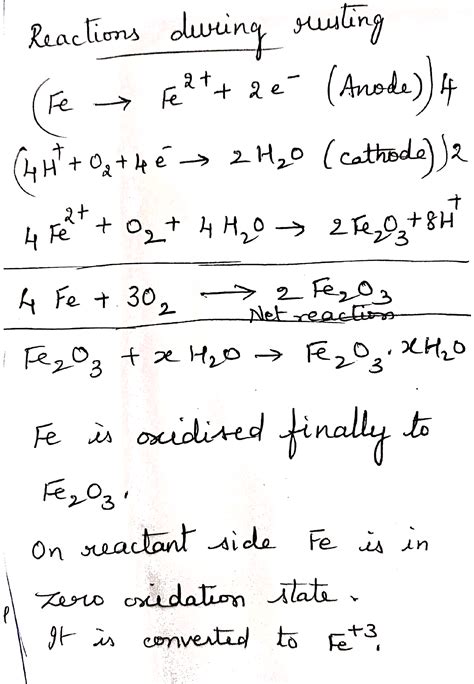 Reactions during rusting
(Fe → Fe²⁺ + 2e⁻ (Anode)) 4
(4H⁺ + O₂ + 4e⁻ → 2H₂O (cathode)) 2
4Fe²⁺ + O₂ + 4H₂O → 2Fe₂O₃ + 8H⁺
4Fe + 3O₂ → 2Fe₂O₃
Net reaction
Fe₂O₃ + xH₂O → Fe₂O₃.xH₂O
Fe is oxidised finally to
Fe₂O₃.
On reactant side Fe is in
zero oxidation state.
It is converted to Fe⁺³.